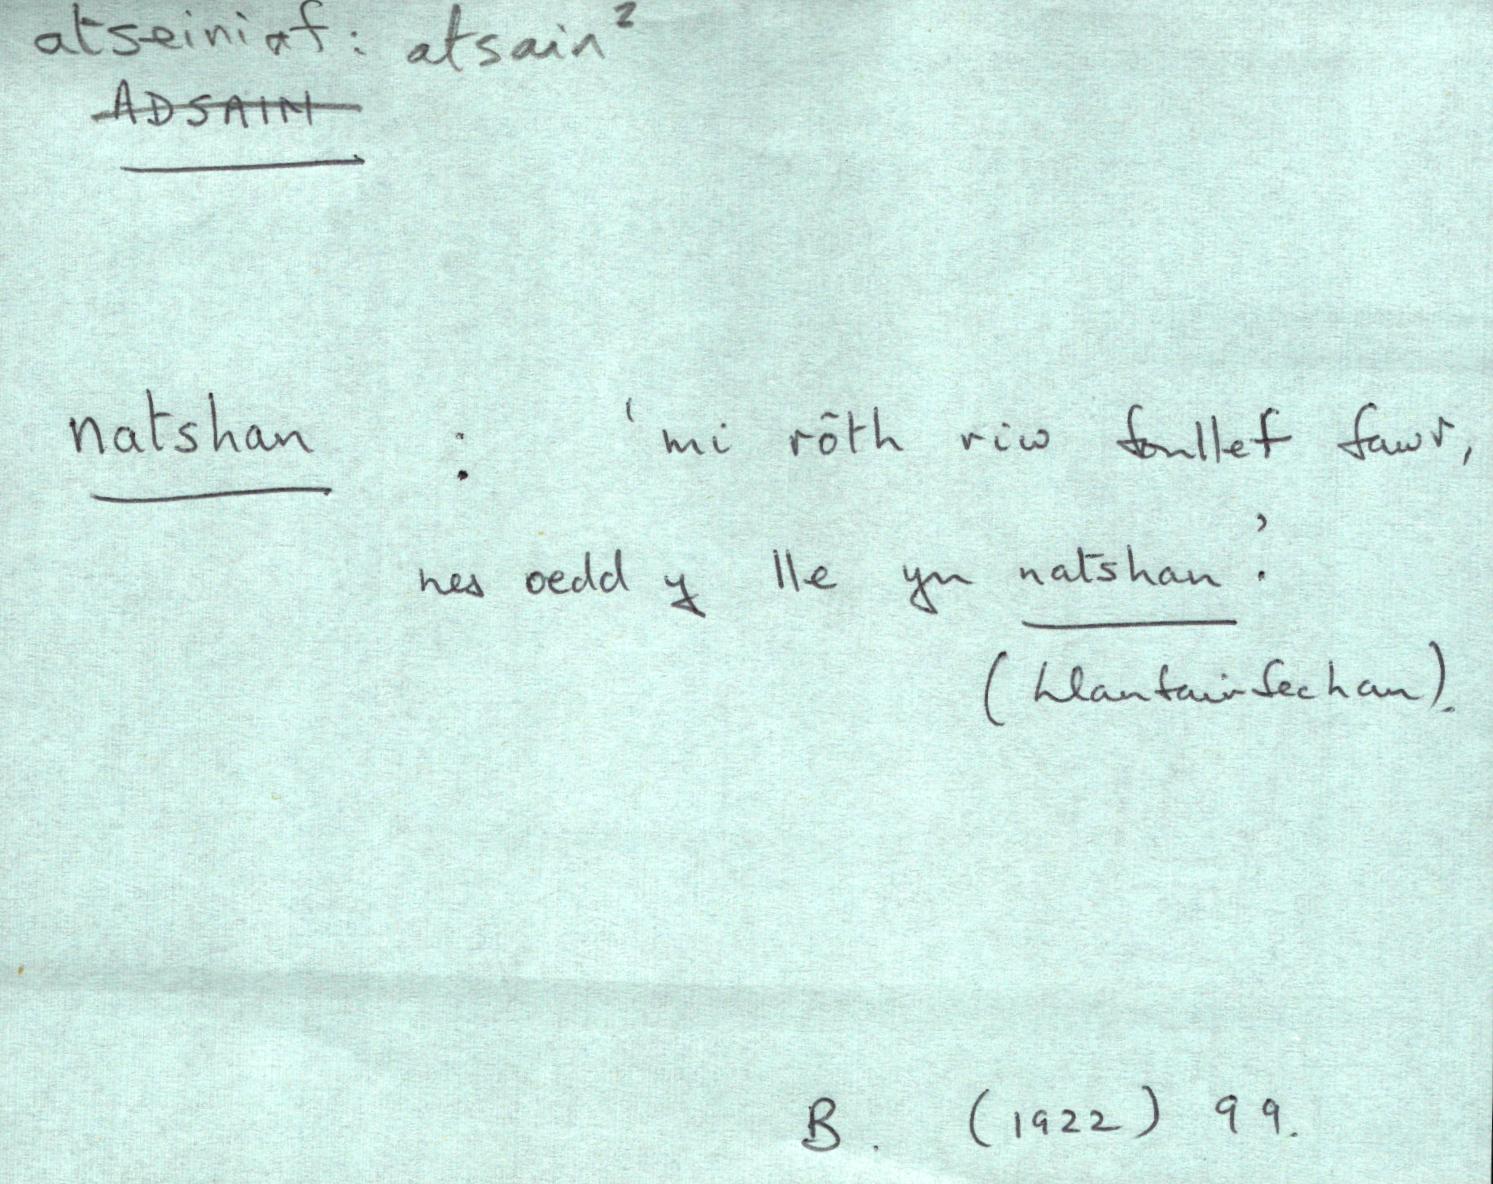 atseiniaf: atsain²
ADSAIN
natshan : 'mi rōth riw fonllef fawr,
nes oedd y lle yn natshan'.
(Llanfairfechan).
B. (1922) 99.